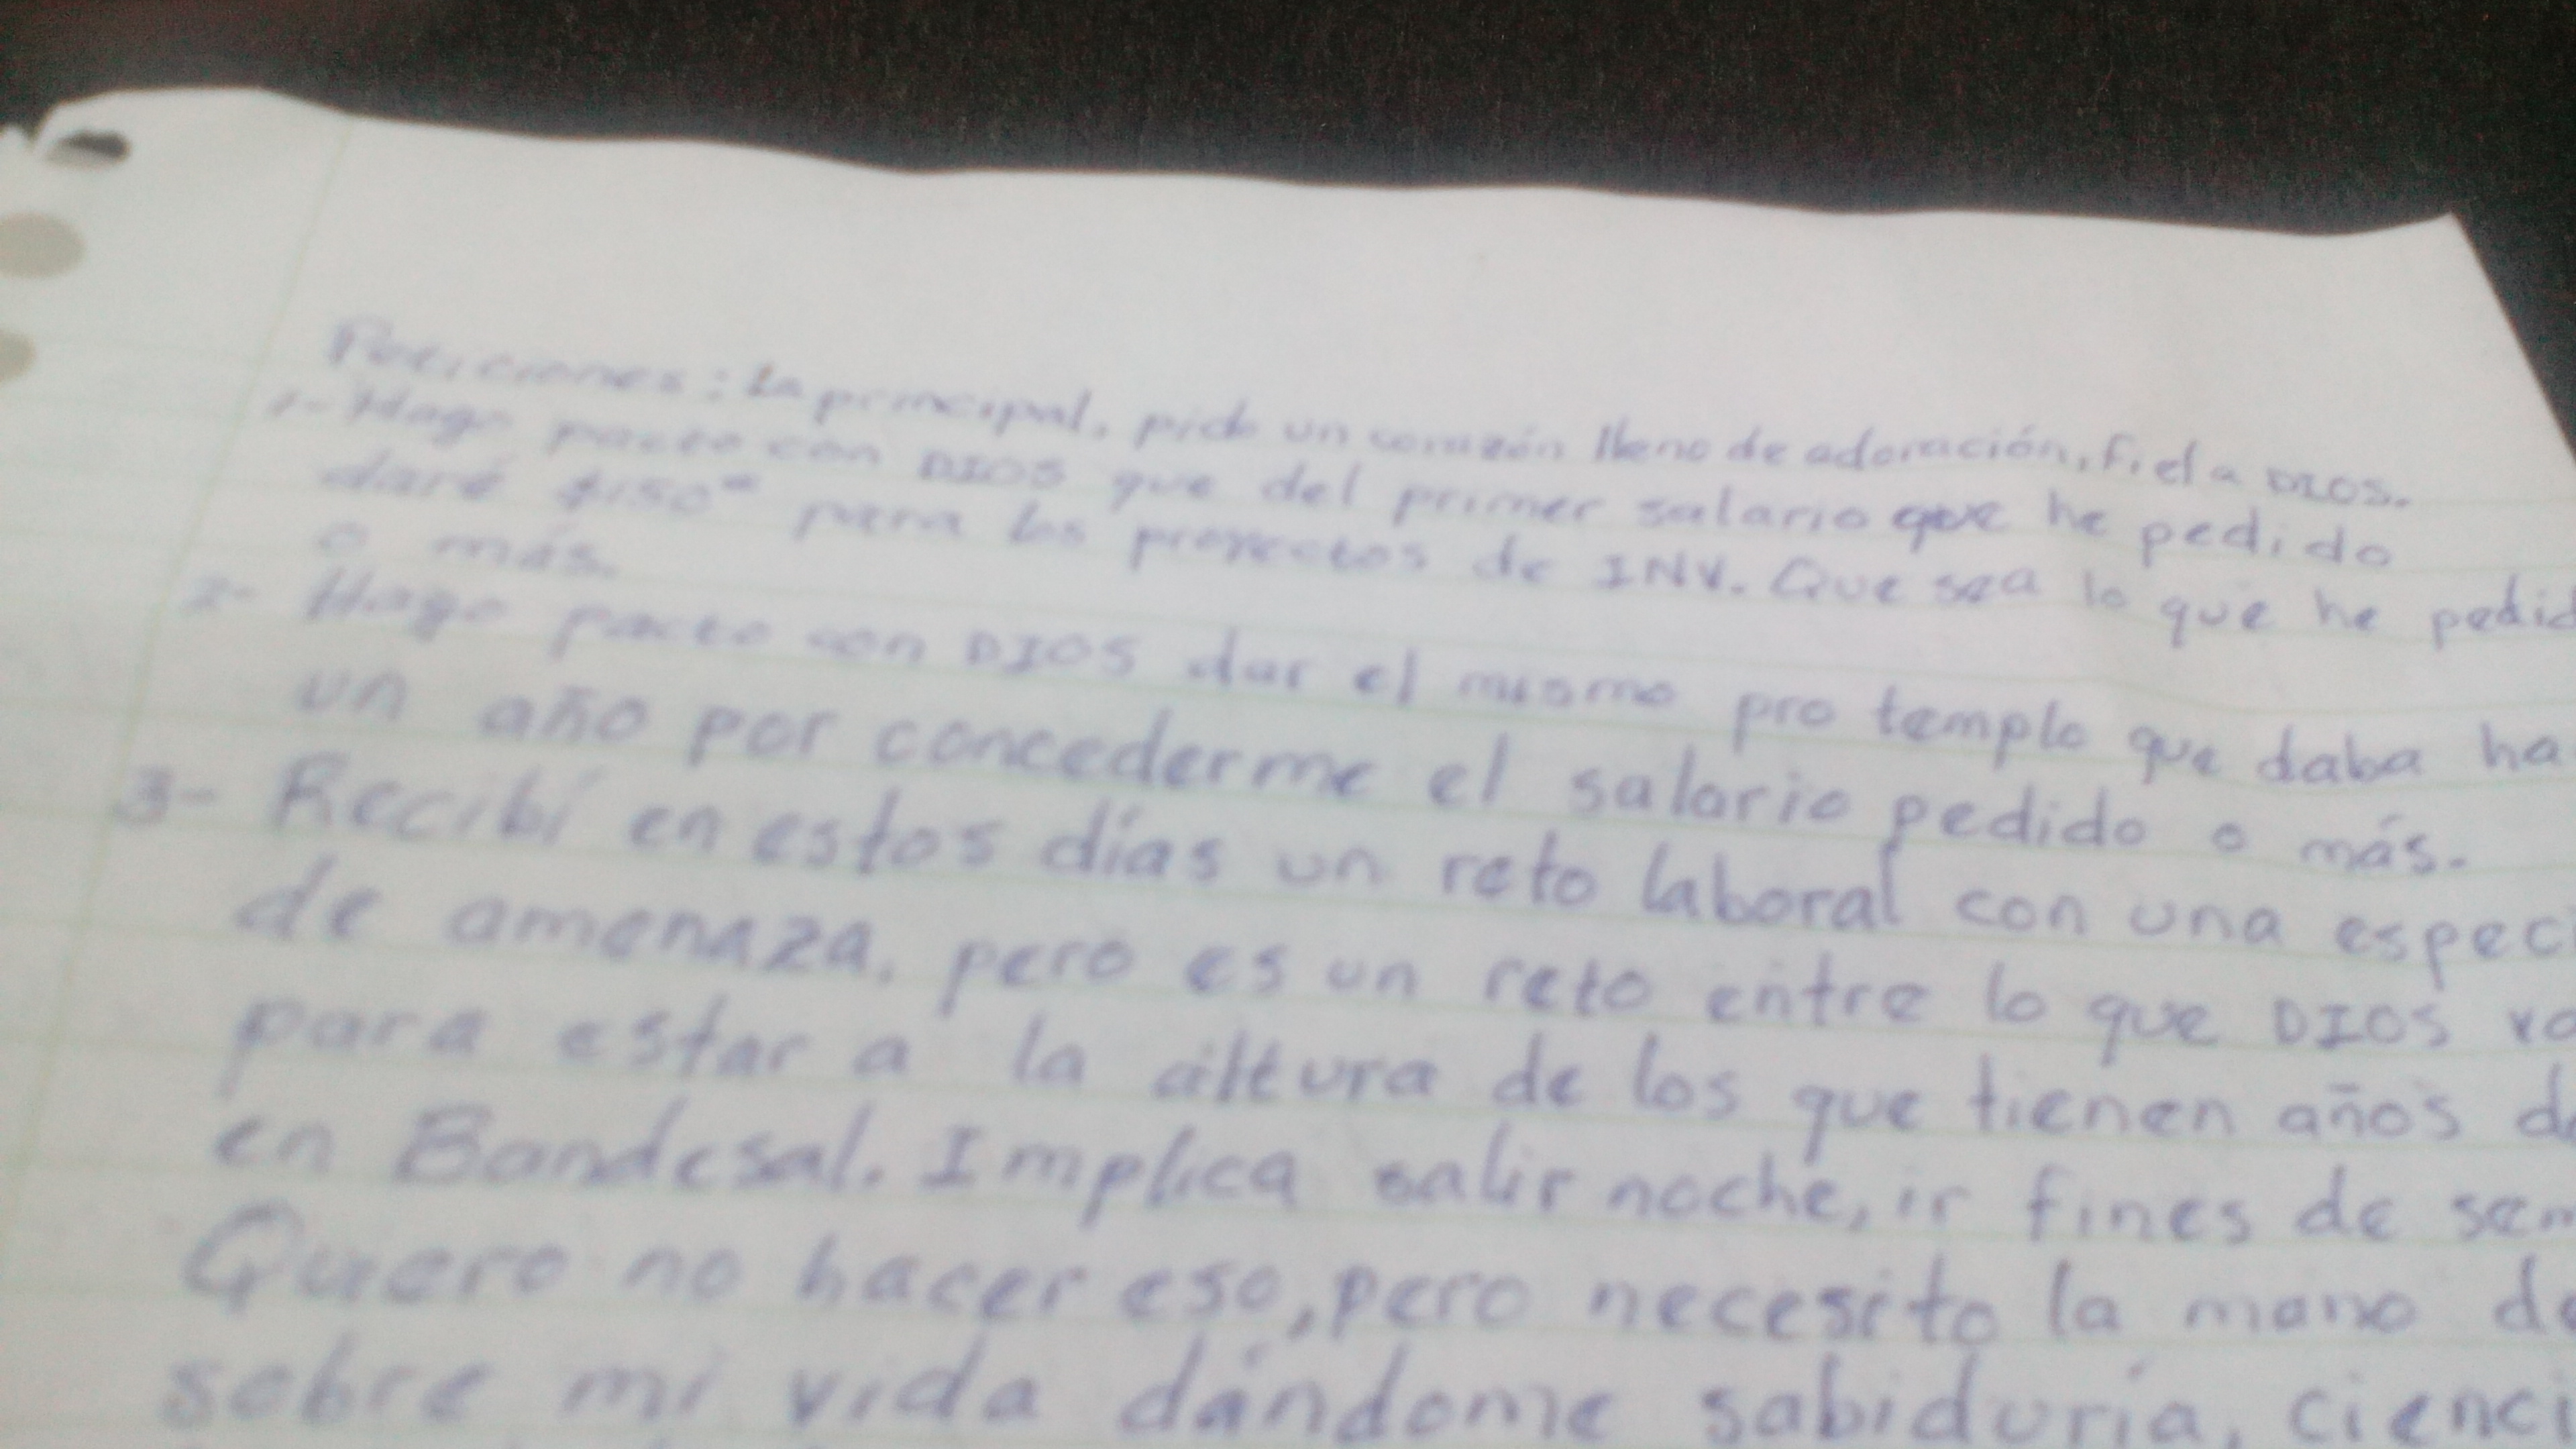 Peticiones: La principal, pido un corazón lleno de adoración, fiel a DIOS.
1- Hago pacto con DIOS que del primer salario que he pedido
daré $150 para los proyectos de INV. Que sea lo que he pedid
o más.
2- Hago pacto con DIOS dar el mismo pro templo que daba ha
un año por concederme el salario pedido o más.
3- Recibí en estos días un reto laboral con una especi
de amenaza, pero es un reto entre lo que DIOS va
para estar a la altura de los que tienen años de
en Bandesal. Implica salir noche, ir fines de sem
Quiero no hacer eso, pero necesito la mano de
sobre mi vida dándome sabiduría, cienci